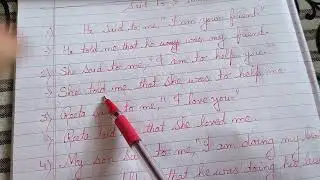 said to
1) He said to me, "I am your friend."
→ He told me that he was my friend.
2) She said to me, "I to help you."
→ She told me that she was to help me
3) Reeta to me, "I love you."
→ Reeta told that she loved me.
4) My son to me, "I am doing my
that he was doing his